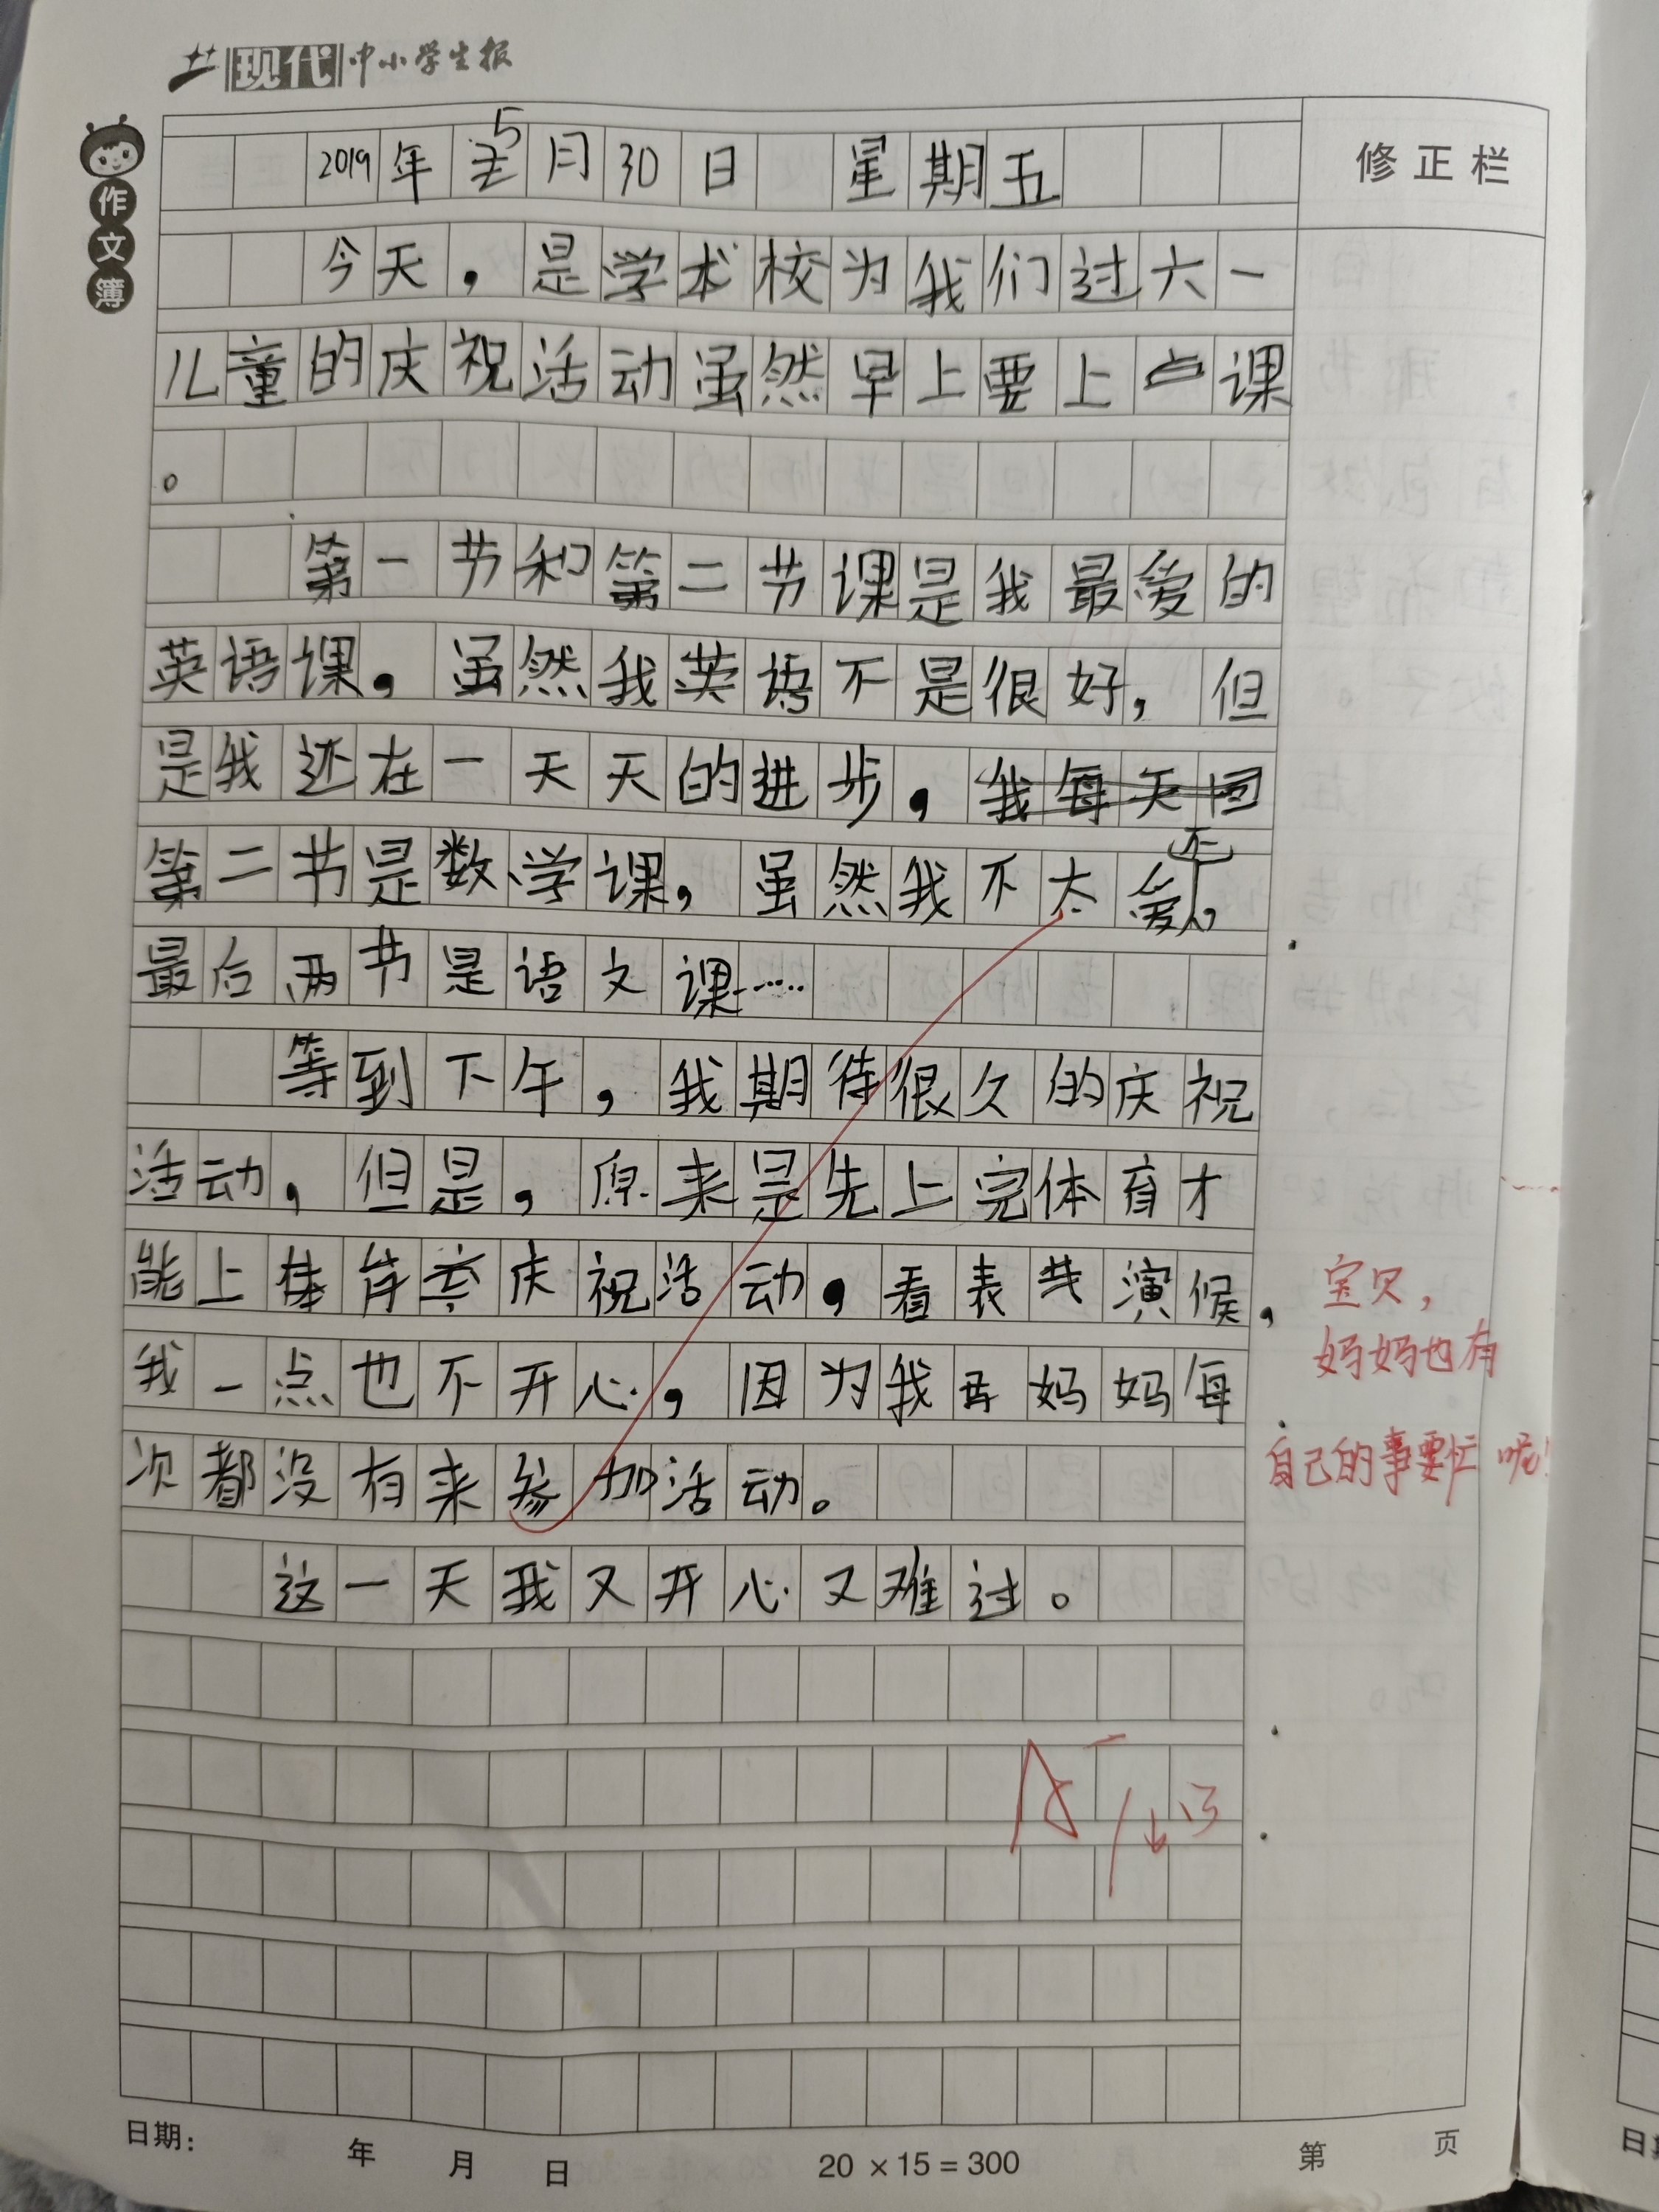 现代中小学生报
作文簿
修正栏
2019年5月30日 星期五
今天，是学校为我们过六一
儿童的庆祝活动虽然早上要上课
。
第一节和第二节课是我最爱的
英语课，虽然我英语不是很好，但
是我还在一天天的进步，我每天回
第二节是数学课，虽然我不太爱，
最后两节是语文课……
等到下午，我期待很久的庆祝
活动，但是，原来是先上完体育才
能上庆祝活动，看表演候，
我一点也不开心，因为我妈妈每
次都没有来参加活动。
这一天我又开心又难过。
宝贝，
妈妈也有
自己的事要忙呢！
A-
日期： 年 月 日
20×15=300
第 页